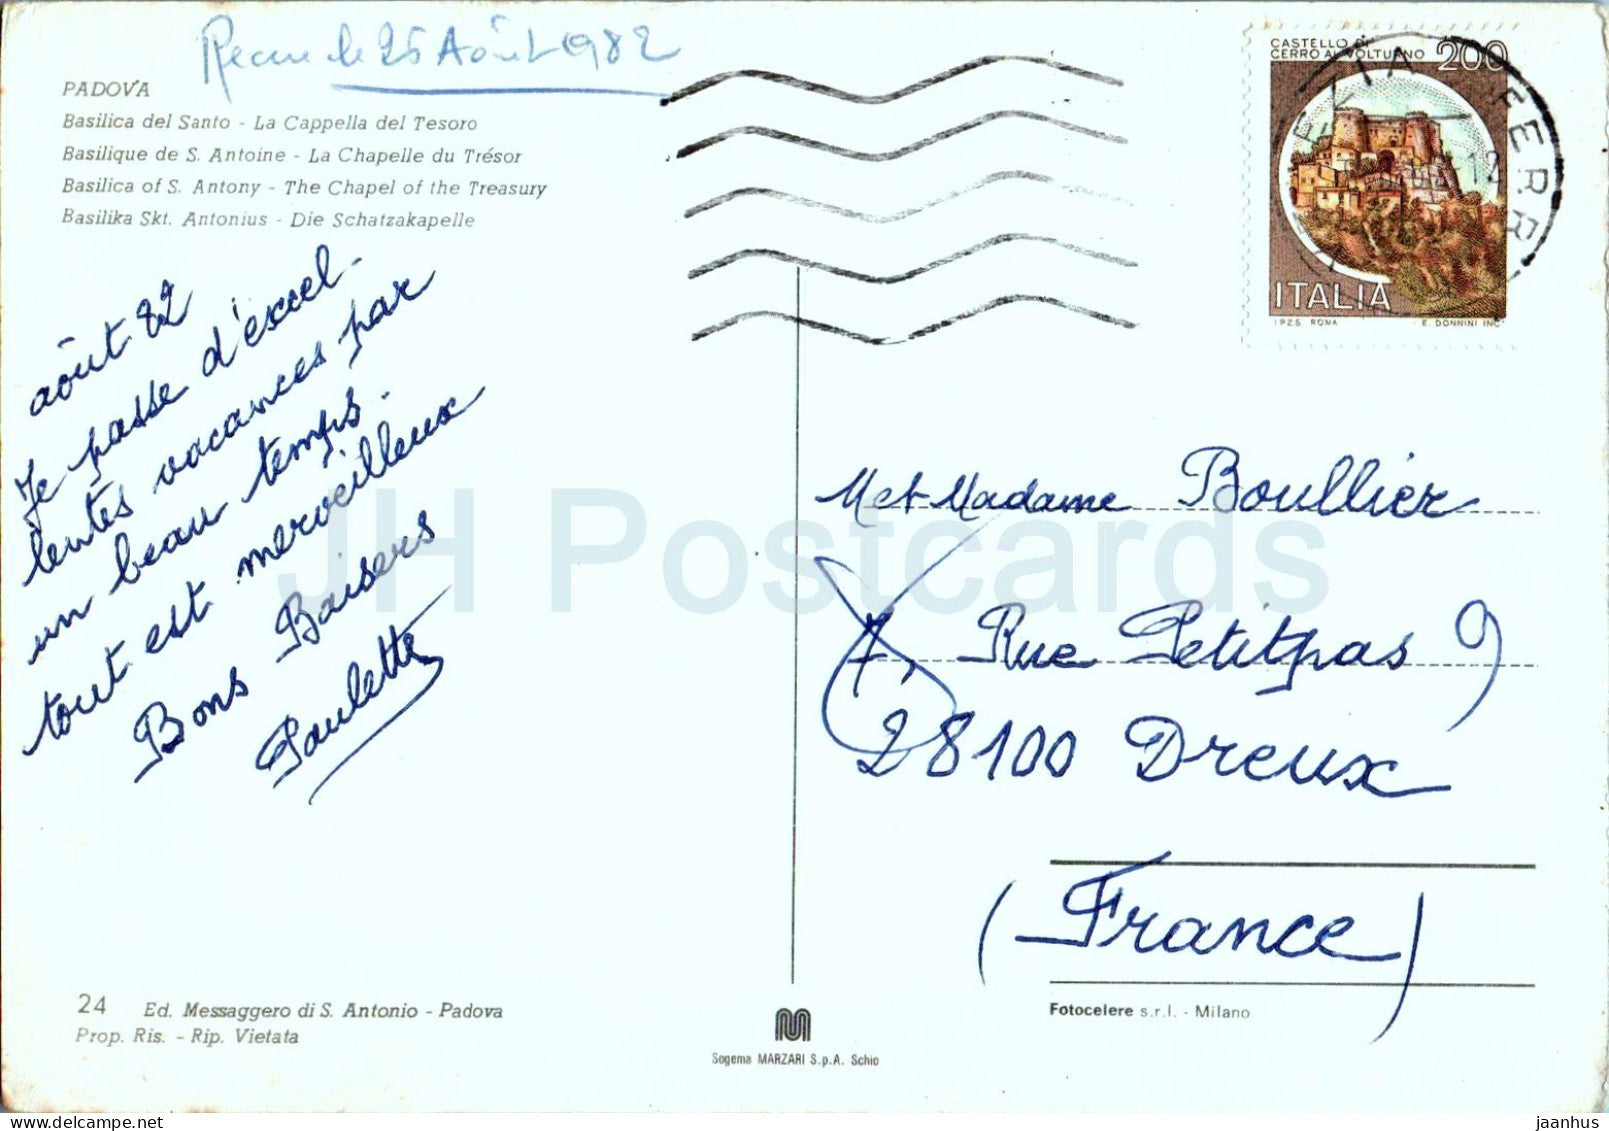 Recue le 25 Août 1982
PADOVA
Basilica del Santo - La Cappella del Tesoro
Basilique de S. Antoine - La Chapelle du Trésor
Basilica of S. Antony - The Chapel of the Treasury
Basilika Skt. Antonius - Die Schatzakapelle
août 82
Je passe d'excel-
lentes vacances par
un beau temps.
tout est merveilleux
Bons Baisers
Paulette
24 Ed. Messaggero di S. Antonio - Padova
Prop. Ris. - Rip. Vietata
Sogema MARZARI S.p.A. Schio
CASTELLO DI
CERRO AL VOLTURNO 200
ITALIA
I.P.Z.S. ROMA E. DONNINI INC.
FERR
12
M et Madame Boullier
7, Rue Petitpas 9
28100 Dreux
(France)
Fotocelere s.r.l. - Milano
JH Postcards
jaanhus